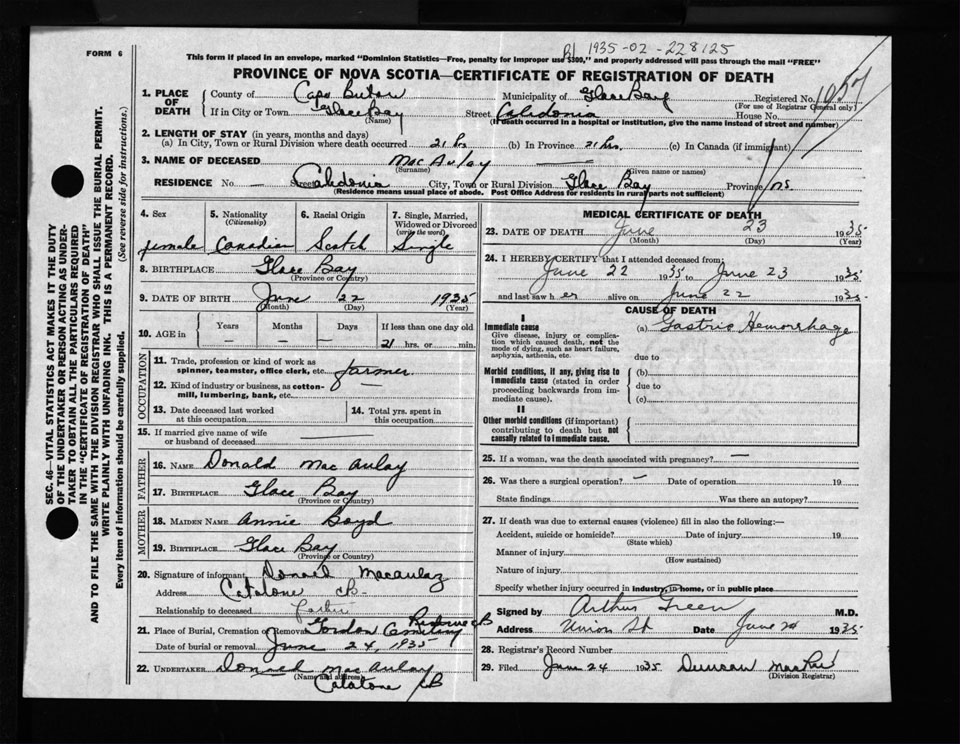 1935-02-228125
FORM 6
This form if placed in an envelope, marked "Dominion Statistics—Free, penalty for improper use $300," and properly addressed will pass through the mail "FREE"
PROVINCE OF NOVA SCOTIA—CERTIFICATE OF REGISTRATION OF DEATH
1. PLACE OF DEATH County of Cape Breton Municipality of Glace Bay Registered No. 1057
(For use of Registrar General only)
If in City or Town Glace Bay Street Caledonia House No.
(Name) (If death occurred in a hospital or institution, give the name instead of street and number)
2. LENGTH OF STAY (in years, months and days)
(a) In City, Town or Rural Division where death occurred 21 hrs (b) In Province 21 hrs. (c) In Canada (if immigrant)
3. NAME OF DECEASED MacAulay —
(Surname) (Given name or names)
RESIDENCE No. — Street Calidonia City, Town or Rural Division Glace Bay Province NS
(Residence means usual place of abode. Post Office Address for residents in rural parts not sufficient)
4. Sex 5. Nationality (Citizenship) 6. Racial Origin 7. Single, Married, Widowed or Divorced (write the word)
female Canadian Scotch Single
8. BIRTHPLACE Glace Bay
(Province or Country)
9. DATE OF BIRTH June 22 1935
(Month) (Day) (Year)
10. AGE in Years Months Days If less than one day old
— — — 21 hrs. or min.
OCCUPATION
11. Trade, profession or kind of work as spinner, teamster, office clerk, etc. farmer
12. Kind of industry or business, as cotton-mill, lumbering, bank, etc. —
13. Date deceased last worked at this occupation
14. Total yrs. spent in this occupation
15. If married give name of wife or husband of deceased —
FATHER
16. NAME Donald MacAulay
17. BIRTHPLACE Glace Bay
(Province or Country)
MOTHER
18. MAIDEN NAME Annie Boyd
19. BIRTHPLACE Glace Bay
(Province or Country)
20. Signature of informant Donald Macaulay
Address Catalone CB
Relationship to deceased
21. Place of Burial, Cremation or Removal Gordon Cemetery CB
Date of burial or removal June 24, 1935
22. UNDERTAKER Donald MacAulay
(Name and address)
Catalone CB
MEDICAL CERTIFICATE OF DEATH
23. DATE OF DEATH June 23 1935
(Month) (Day) (Year)
24. I HEREBY CERTIFY that I attended deceased from:
June 22 1935 to June 23 1935
and last saw her alive on June 22 1935
CAUSE OF DEATH
I
Immediate cause
Give disease, injury or complication which caused death, not the mode of dying, such as heart failure, asphyxia, asthenia, etc.
(a) Gastric Hemorrhage
due to
Morbid conditions, if any, giving rise to immediate cause (stated in order proceeding backwards from immediate cause).
(b)
due to
(c)
II
Other morbid conditions (if important) contributing to death but not causally related to immediate cause.
25. If a woman, was the death associated with pregnancy? —
26. Was there a surgical operation? — Date of operation 19
State findings Was there an autopsy?
27. If death was due to external causes (violence) fill in also the following:—
Accident, suicide or homicide? Date of injury 19
(State which)
Manner of injury
(How sustained)
Nature of injury
Specify whether injury occurred in industry, in home, or in public place
Signed by Arthur Green M.D.
Address Union St Date June 24 1935
28. Registrar's Record Number
29. Filed June 24 1935 Duncan
(Division Registrar)
SEC. 46—VITAL STATISTICS ACT MAKES IT THE DUTY
OF THE UNDERTAKER OR PERSON ACTING AS UNDER-
TAKER TO OBTAIN ALL THE PARTICULARS REQUIRED
IN THE "CERTIFICATE OF REGISTRATION OF DEATH"
AND TO FILE THE SAME WITH THE DIVISION REGISTRAR WHO SHALL ISSUE THE BURIAL PERMIT.
WRITE PLAINLY WITH UNFADING INK. THIS IS A PERMANENT RECORD.
Every item of information should be carefully supplied. (See reverse side for instructions.)